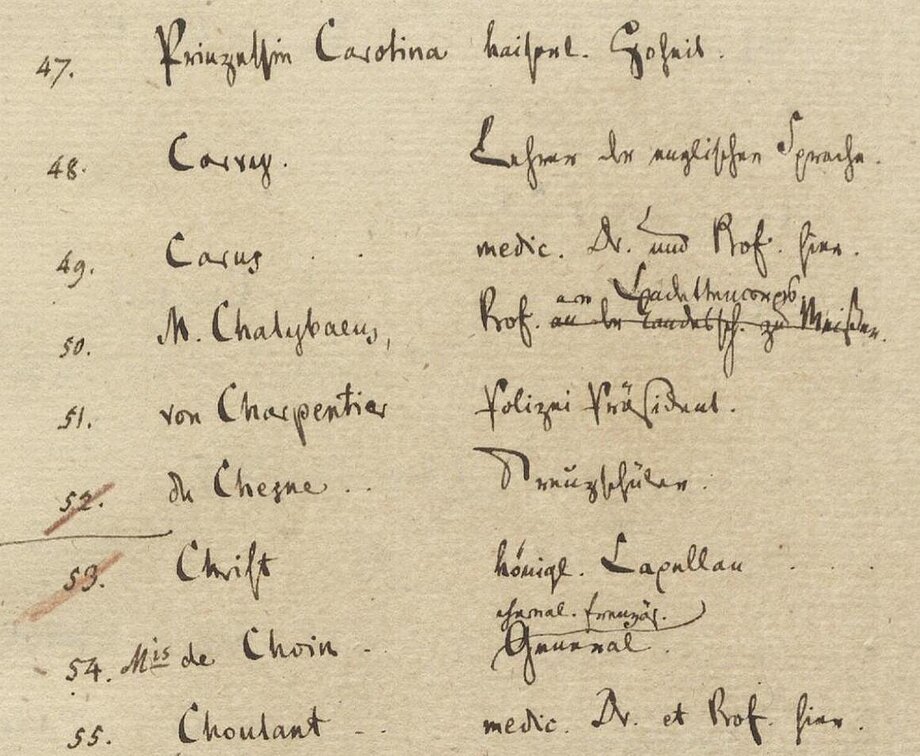 47. Prinzessin Carolina kaiserl. Hoheit.
48. Carrey. Lehrer der englischen Sprache.
49. Carus . . medic. Dr. und Prof. hier.
am Cadettencorps
50. M. Chalybaeus, Prof. an der Landessch. zu Meißen.
51. von Charpentier Polizei Präsident.
52. du Chesne . . Kreuzschüler.
53. Christ königl. Capellan . . . .
ehemal. französ.
54. Mis de Choin - General.
55. Choulant - - medic. Dr. et Prof. hier.